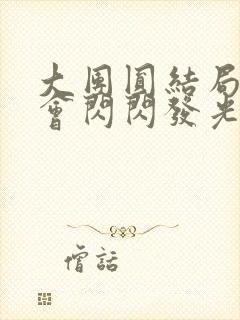 大團圓結局
會閃閃發光
憎話